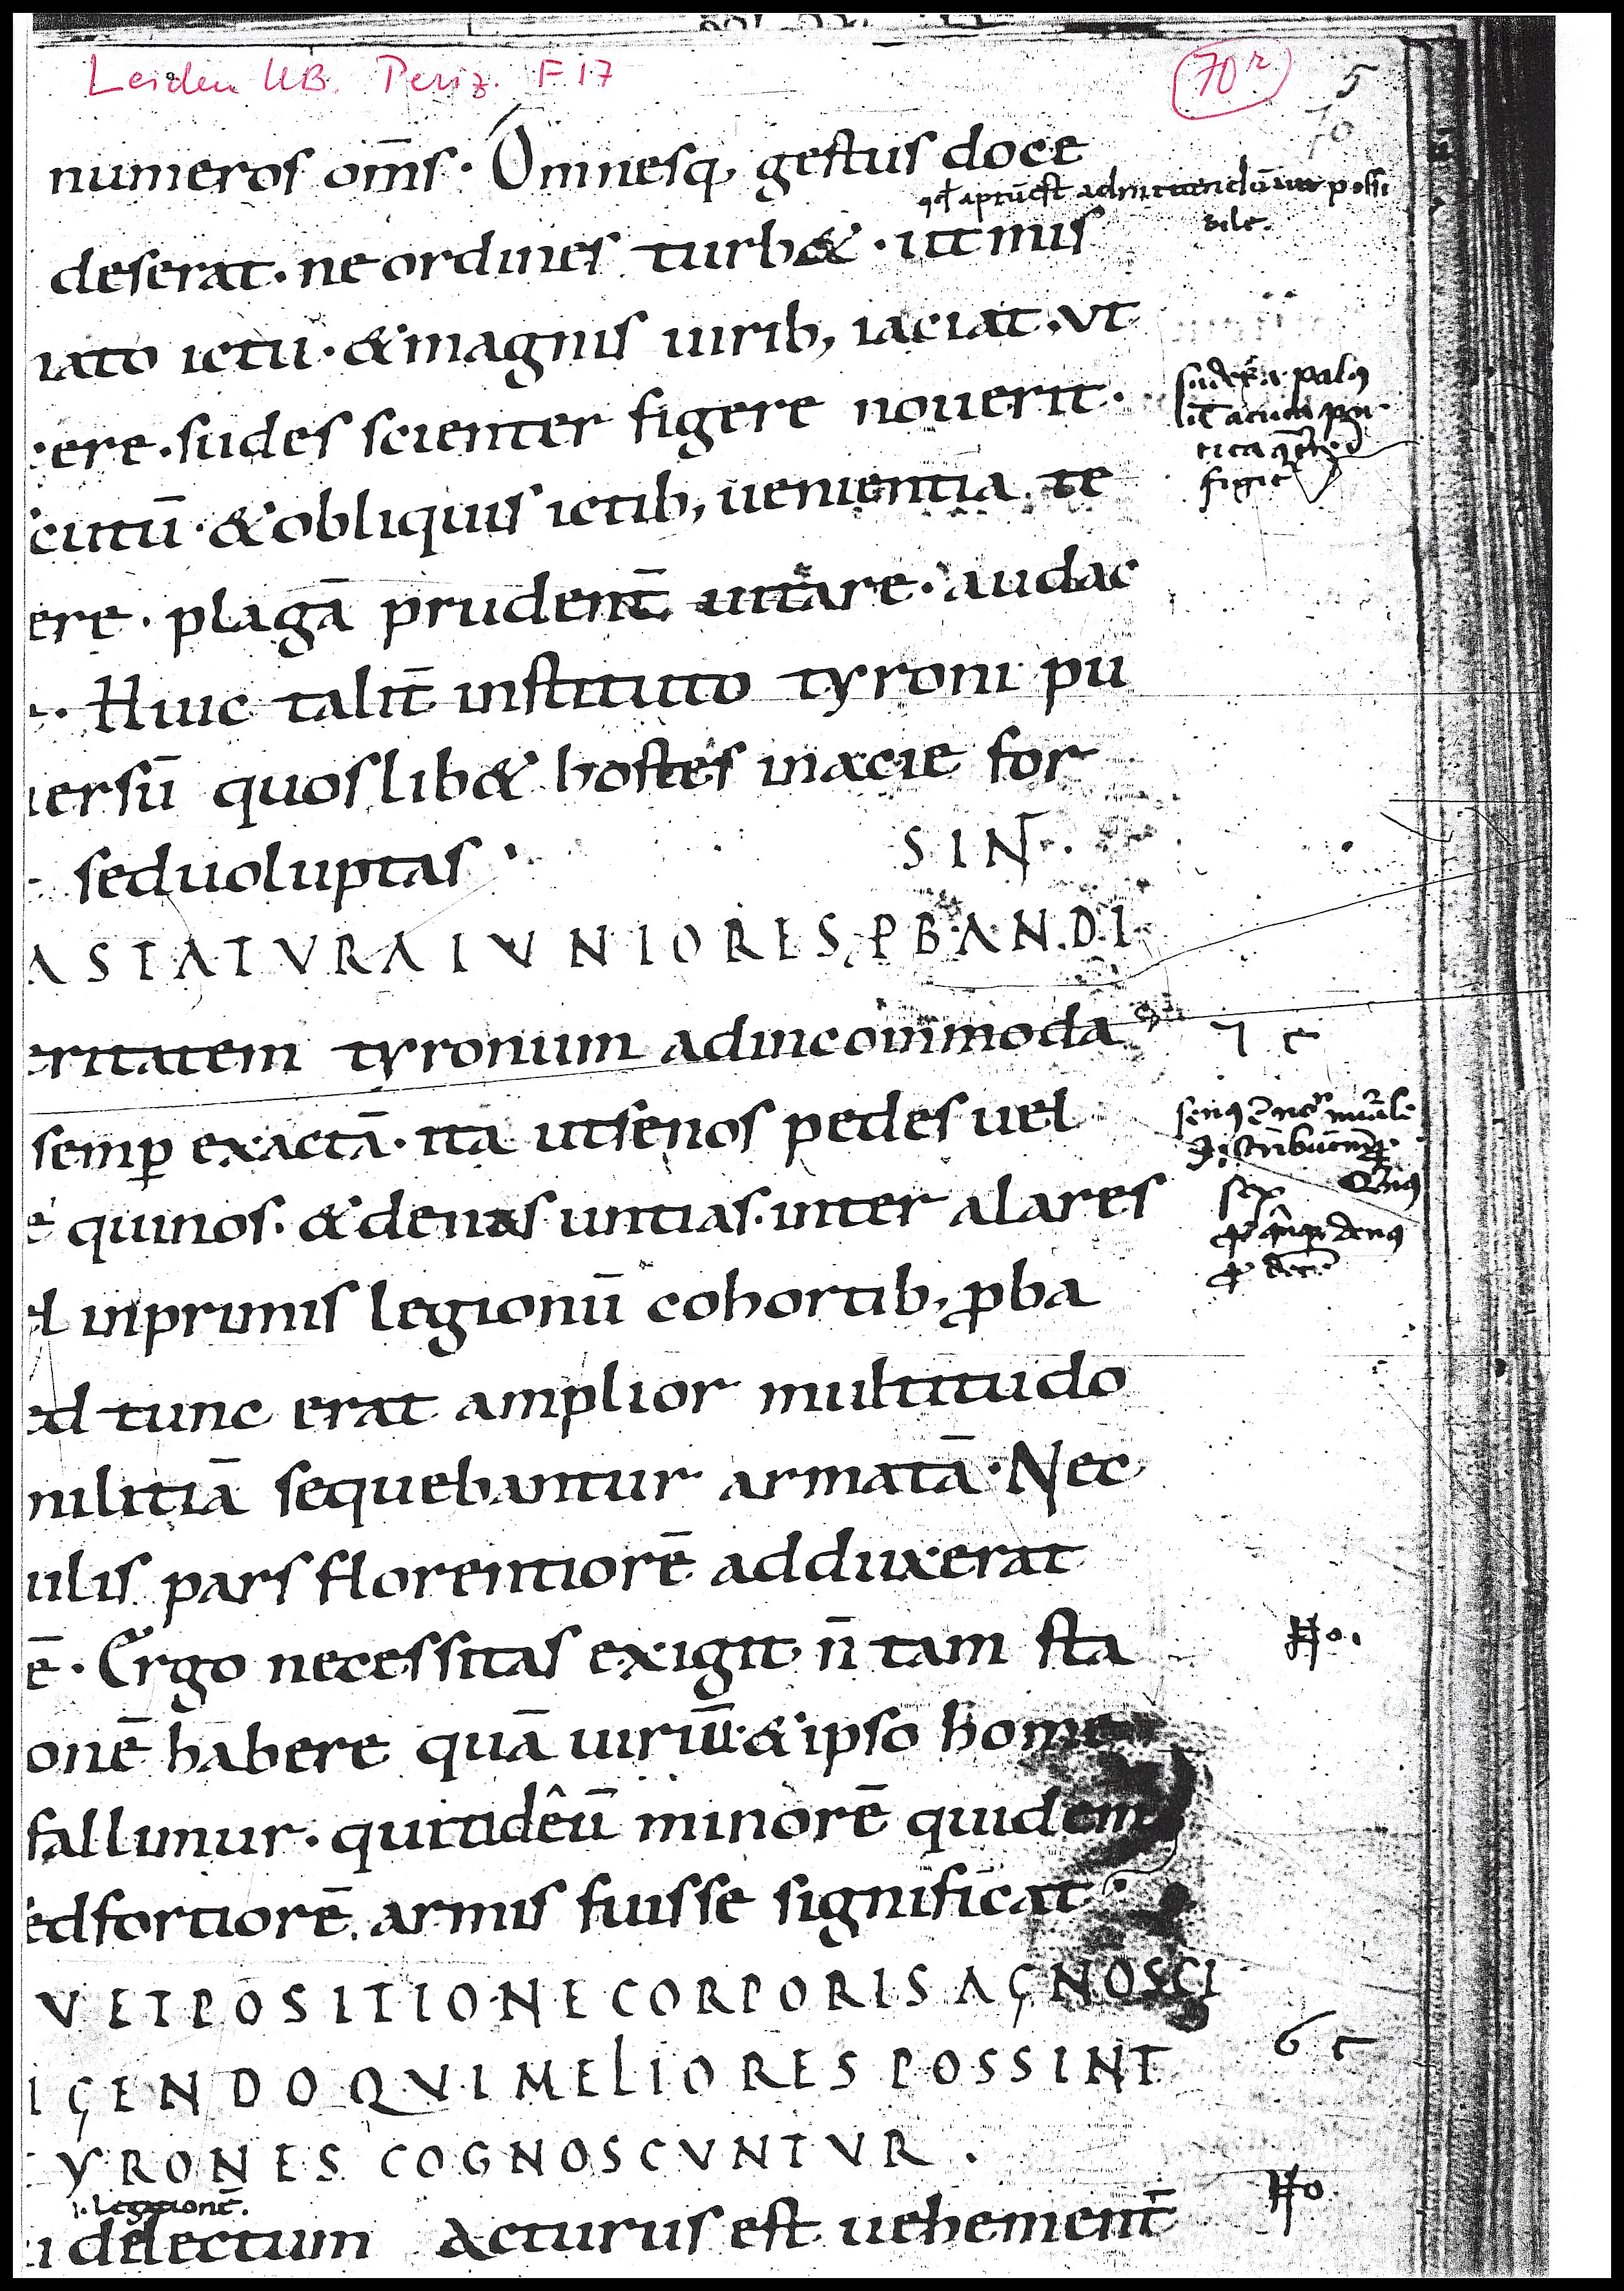 Leiden UB. Periz. F 17
70r
5
70
numeros om̄s. Omnesq, gestus doce
qd̄ aptū est admittendū
bile.
deserat. ne ordines turb&. ut mis
iato ictu. & magnis uirib, iaciat. ut
ere. sudes scienter figere nouerit.
figit̄
cutū. & obliquis ictib, uenientia te
ere. plagā prudent̄ uitare. audac
. Huic talit̄ instituto tyroni pu
ersū quoslib& hostes inacie for
sed uoluptas. SIN.
A STATVRA IVNIORES PBANDI
eritatem tyronium ad incommoda
7 c
semp̱ exactā. ita ut senos pedes uel
quinos. & denas untias. inter alares
sex
l inprimis legionū cohortib, ꝓba
ed tunc erat amplior multitudo
militiā sequebantur armatā. Nec
ulis pars florentiorē adduxerat
ē. Ergo necessitas exigit n̄ tam sta
onē habere quā uiriū. & ipso home
fallimur. qui tidêū minorē quidem
ed fortiorē armis fuisse significat.
V ET POSITIONE CORPORIS AGNOSCI
IGENDO QVI MELIORES POSSINT
6 c
TYRONES COGNOSCVNTVR.
i. legionē.
i delectum acturus est uehement̄